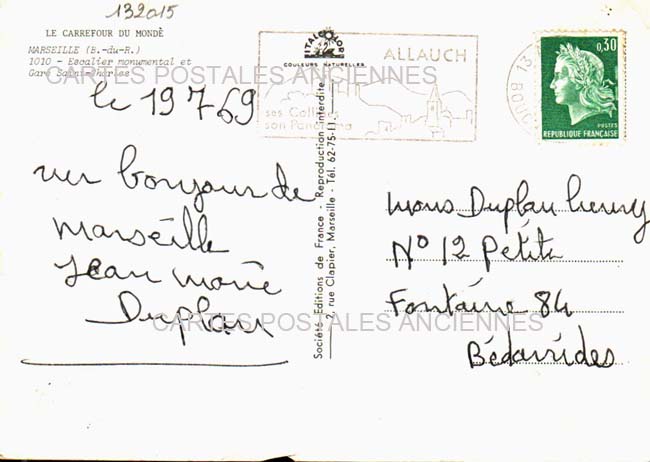 132015
LE CARREFOUR DU MONDE
MARSEILLE (B.-du-R.)
1010 - Escalier monumental et
Gare Saint-Charles
CARTES POSTALES ANCIENNES
le 19 7 69
un bonjour de
Marseille
Jean Marie
Duplan
ITALCOLOR
COULEURS NATURELLES
ALLAUCH
ses Collines
son Panorama
Société Editions de France - Reproduction interdite
2, rue Clapier, Marseille - Tél. 62-75-11
0,30
POSTES
REPUBLIQUE FRANÇAISE
13
Mons Duplan henry
N° 12 Petite
Fontaine 84
Bédarrides
CARTES POSTALES ANCIENNES